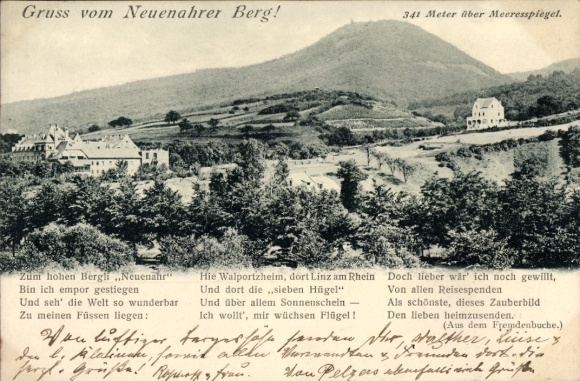 Gruss vom Neuenahrer Berg!
341 Meter über Meeresspiegel.
Zum hohen Bergli „Neuenahr"
Bin ich empor gestiegen
Und seh' die Welt so wunderbar
Zu meinen Füssen liegen:
Hie Walportzheim, dort Linz am Rhein
Und dort die „sieben Hügel"
Und über allem Sonnenschein —
Ich wollt', mir wüchsen Flügel!
Doch lieber wär' ich noch gewillt,
Von allen Reisespenden
Als schönste, dieses Zauberbild
Den lieben heimzusenden.
(Aus dem Fremdenbuche.)
Von luftiger, senden Dir, Walther, Luise &
Verwandten & Freunden dort die
herzl. Grüße! & Frau. Von Pelzers ebenfalls Grüße.